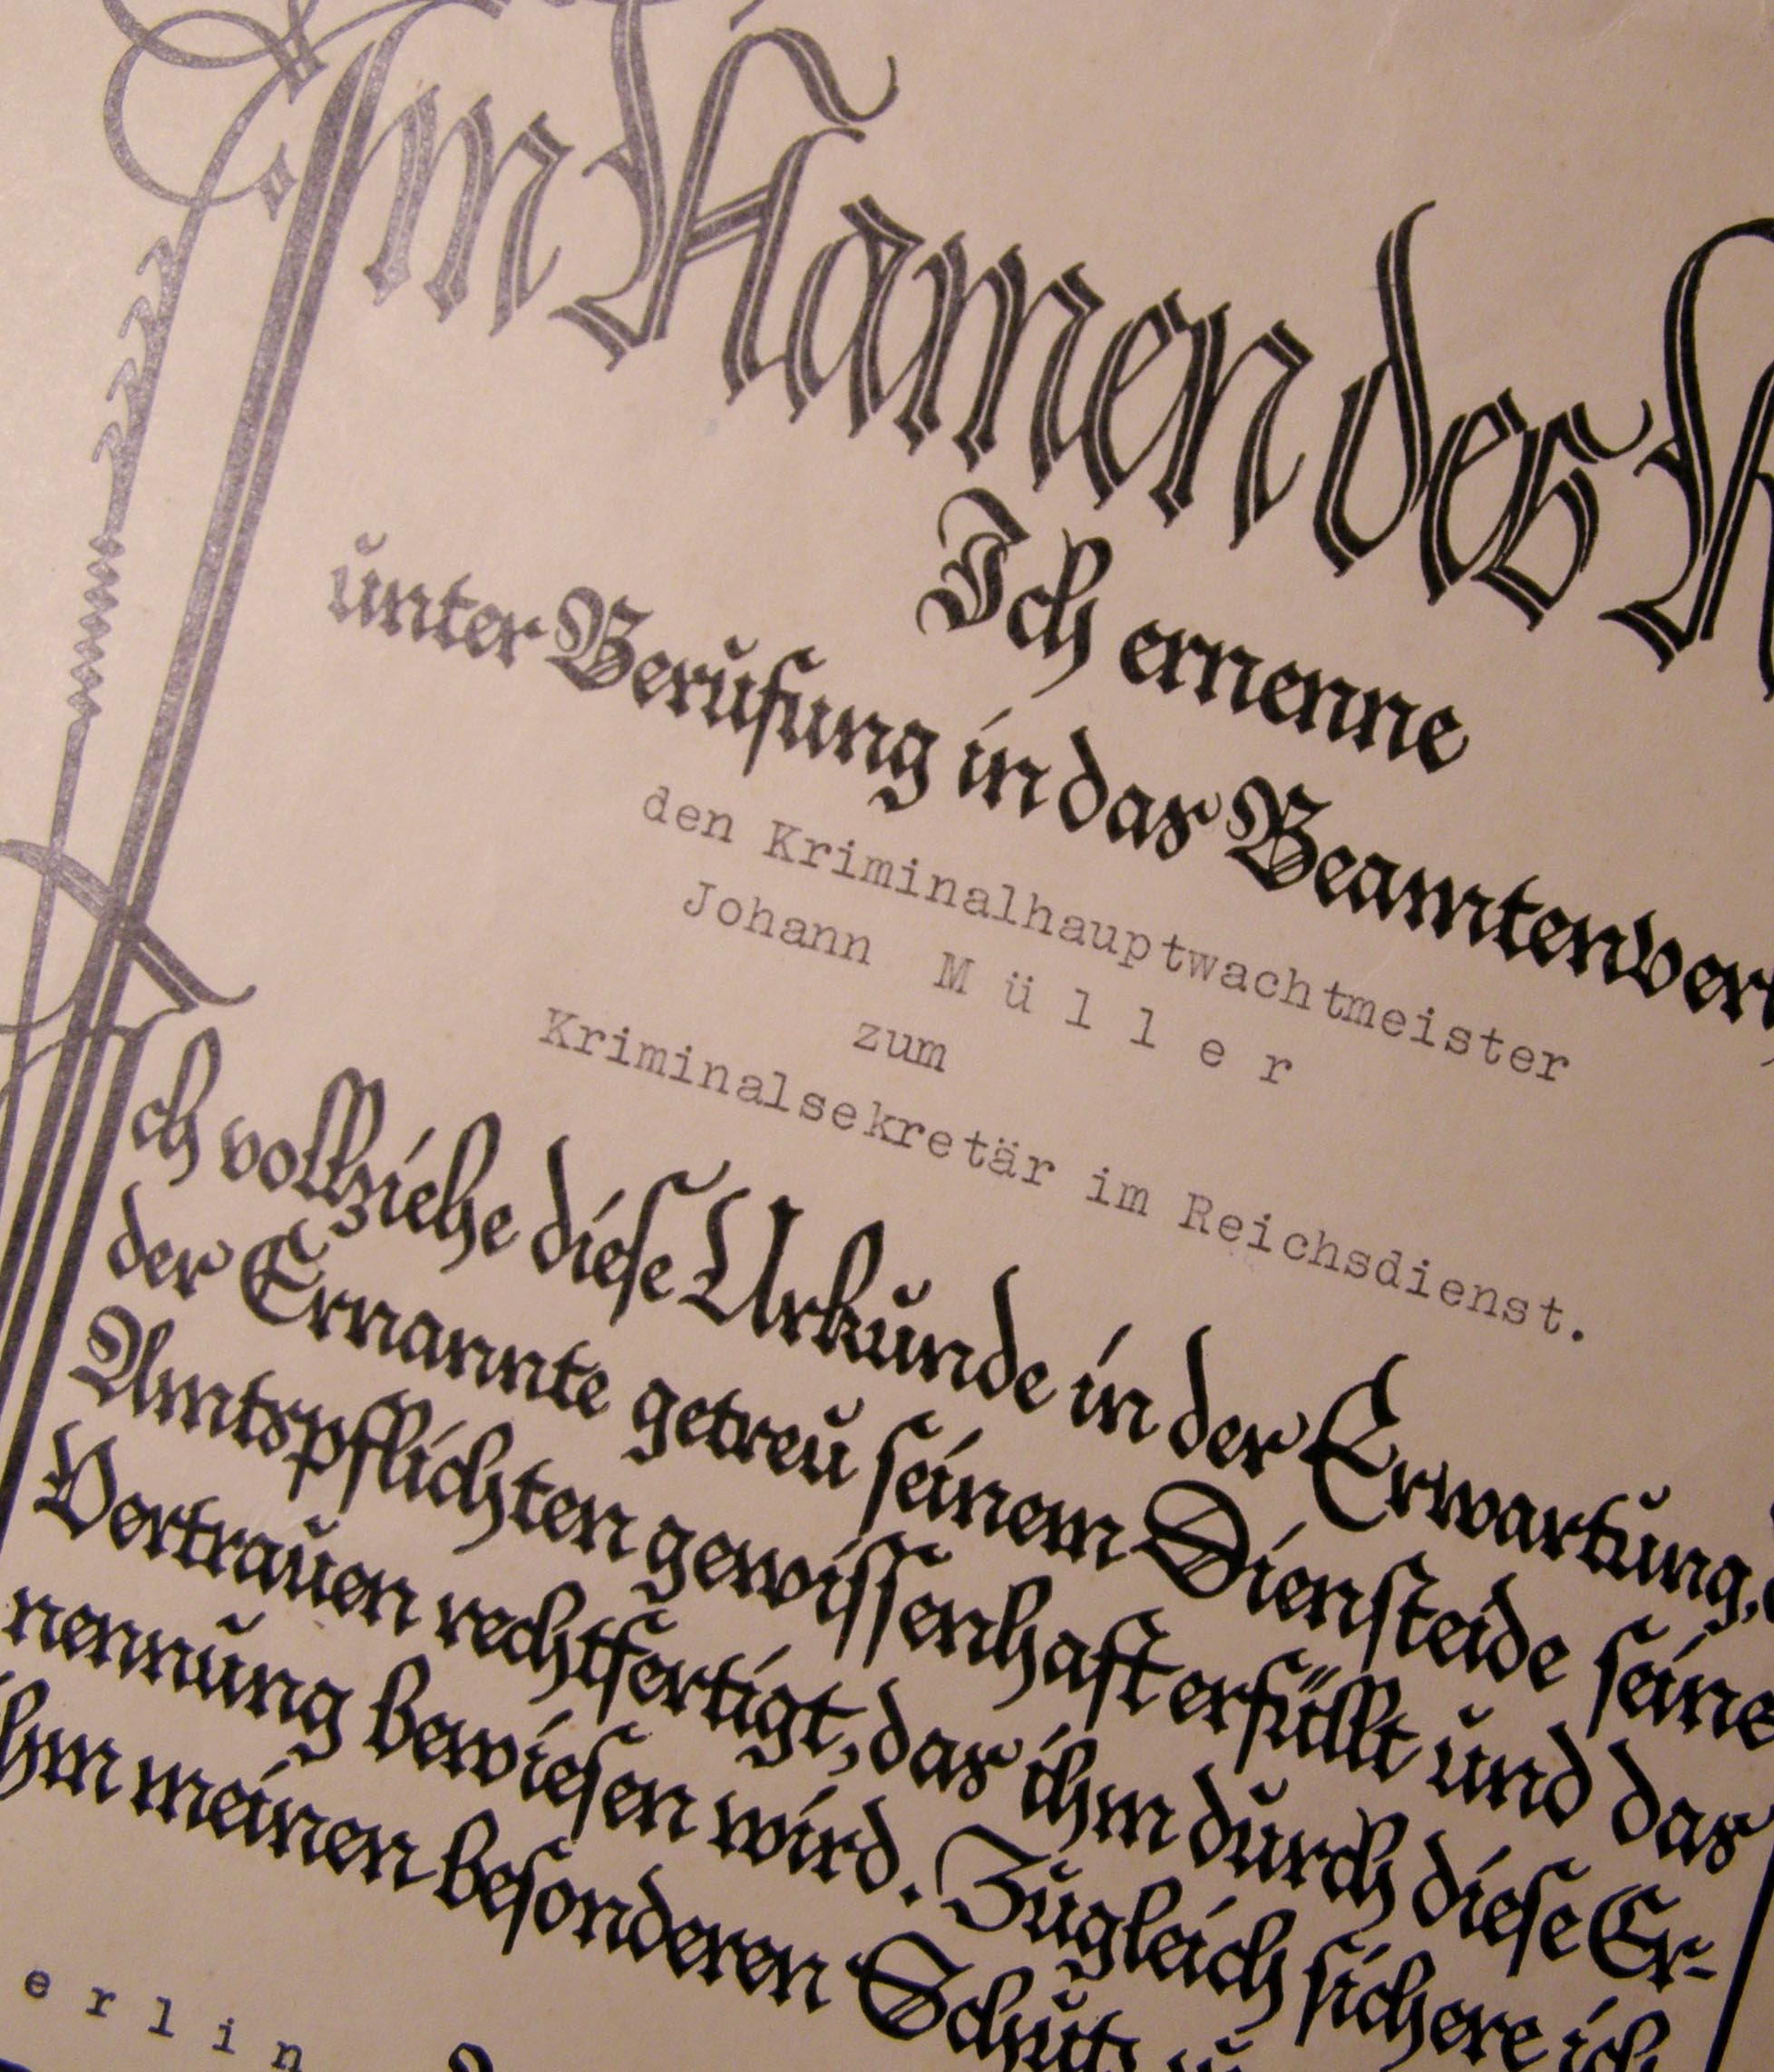 Im Namen des
Ich ernenne
unter Berufung in das Beamtenver
den Kriminalhauptwachtmeister
Johann M ü l l e r
zum
Kriminalsekretär im Reichsdienst.
Ich vollziehe diese Urkunde in der Erwartung,
der Ernannte getreu seinem Diensteide seine
Amtspflichten gewissenhaft erfüllt und das
Vertrauen rechtfertigt, das ihm durch diese Er-
nennung bewiesen wird. Zugleich sichere ich
ihm meinen besonderen Schutz zu
e r l i n